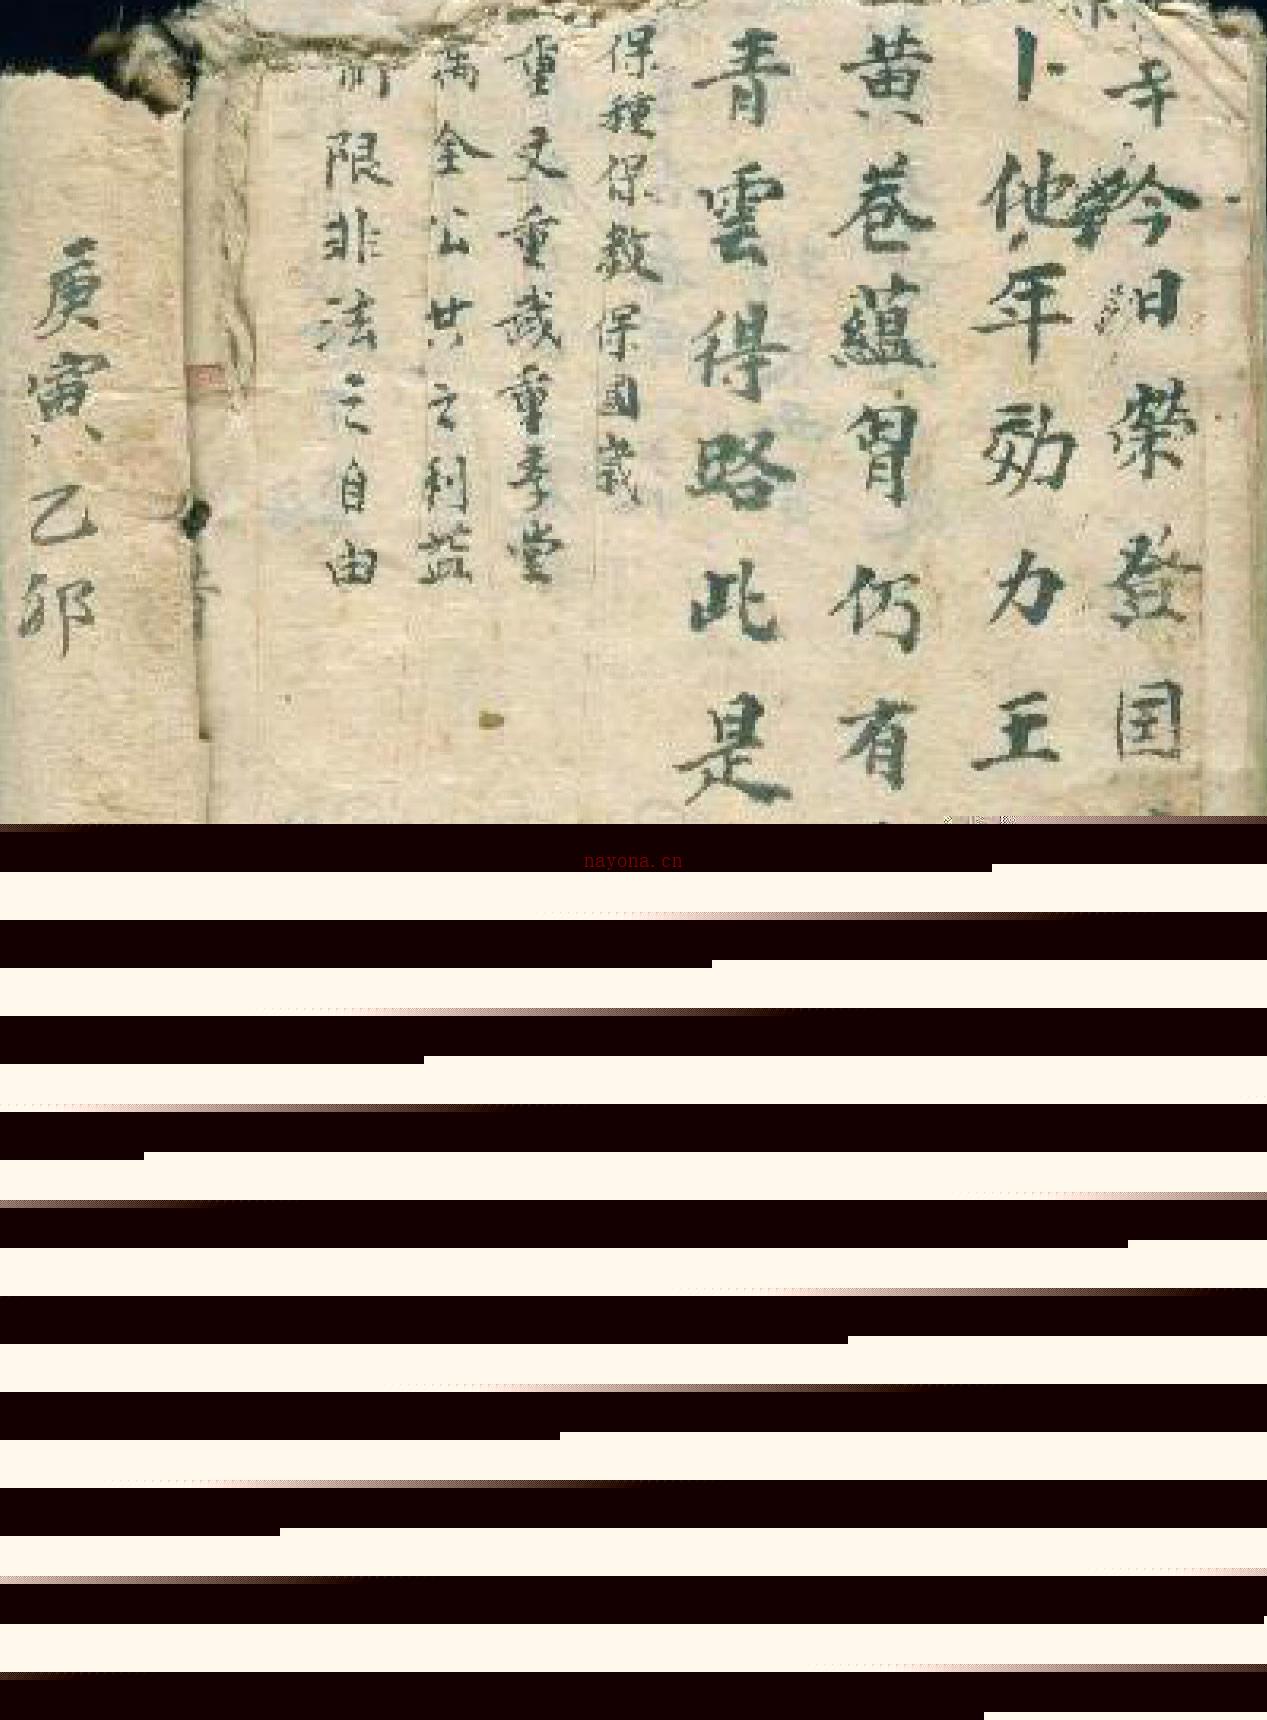 矜旧榮登国
卜他年効力王
黄巷藴胄仍有
青雲得路此是
保種保教保国
重文重武重孝堂
萬全公共之利益
限非法之自由
庚寅乙卯
nayona.cn